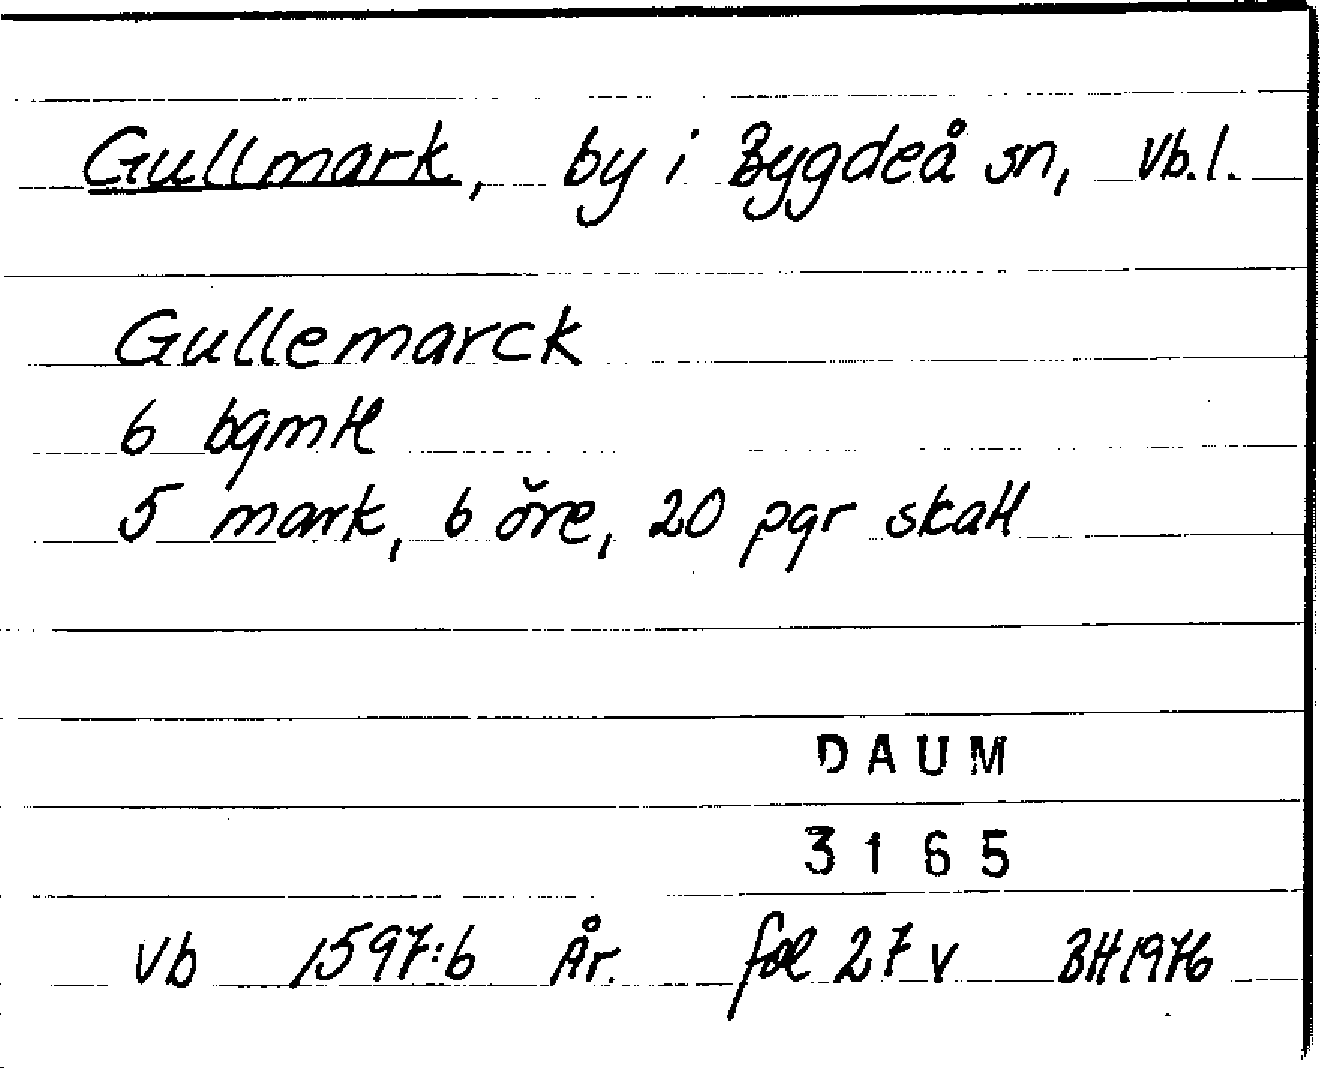 Gullmark, by i Bygdeå sn, Vb.l.
Gullemarck
6 bgmtl
5 mark, 6 öre, 20 pgr skatt
DAUM
3165
Vb 1597:6 År. fol 27 v BH1976